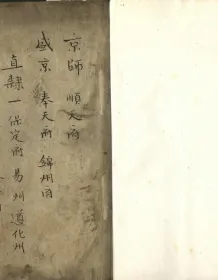 京師 順天府
盛京 奉天府 錦州府
直隸一 保定府 易州 遵化州